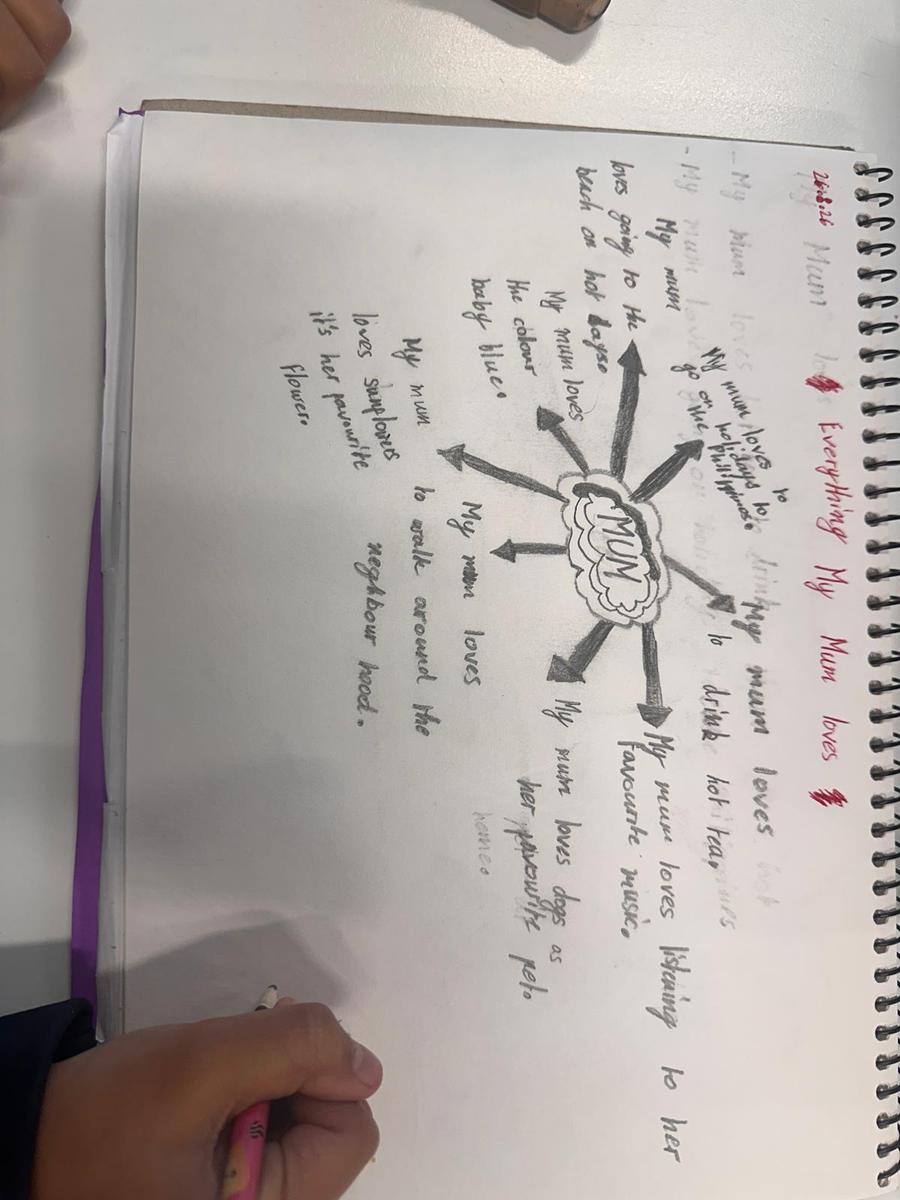 26.8.26
Everything My Mum loves
My mum
loves going to the
beach on hot days.
My mum loves
to go on holidays to
the Philippines.
My mum loves
to drink hot tea.
My mum loves listening to her
favourite music.
My mum loves dogs as
her favourite pet.
My mum loves
to walk around the
neighbour hood.
My mum
loves sunflowers
it's her favourite
flower.
My mum loves
the colour
baby blue.
MUM